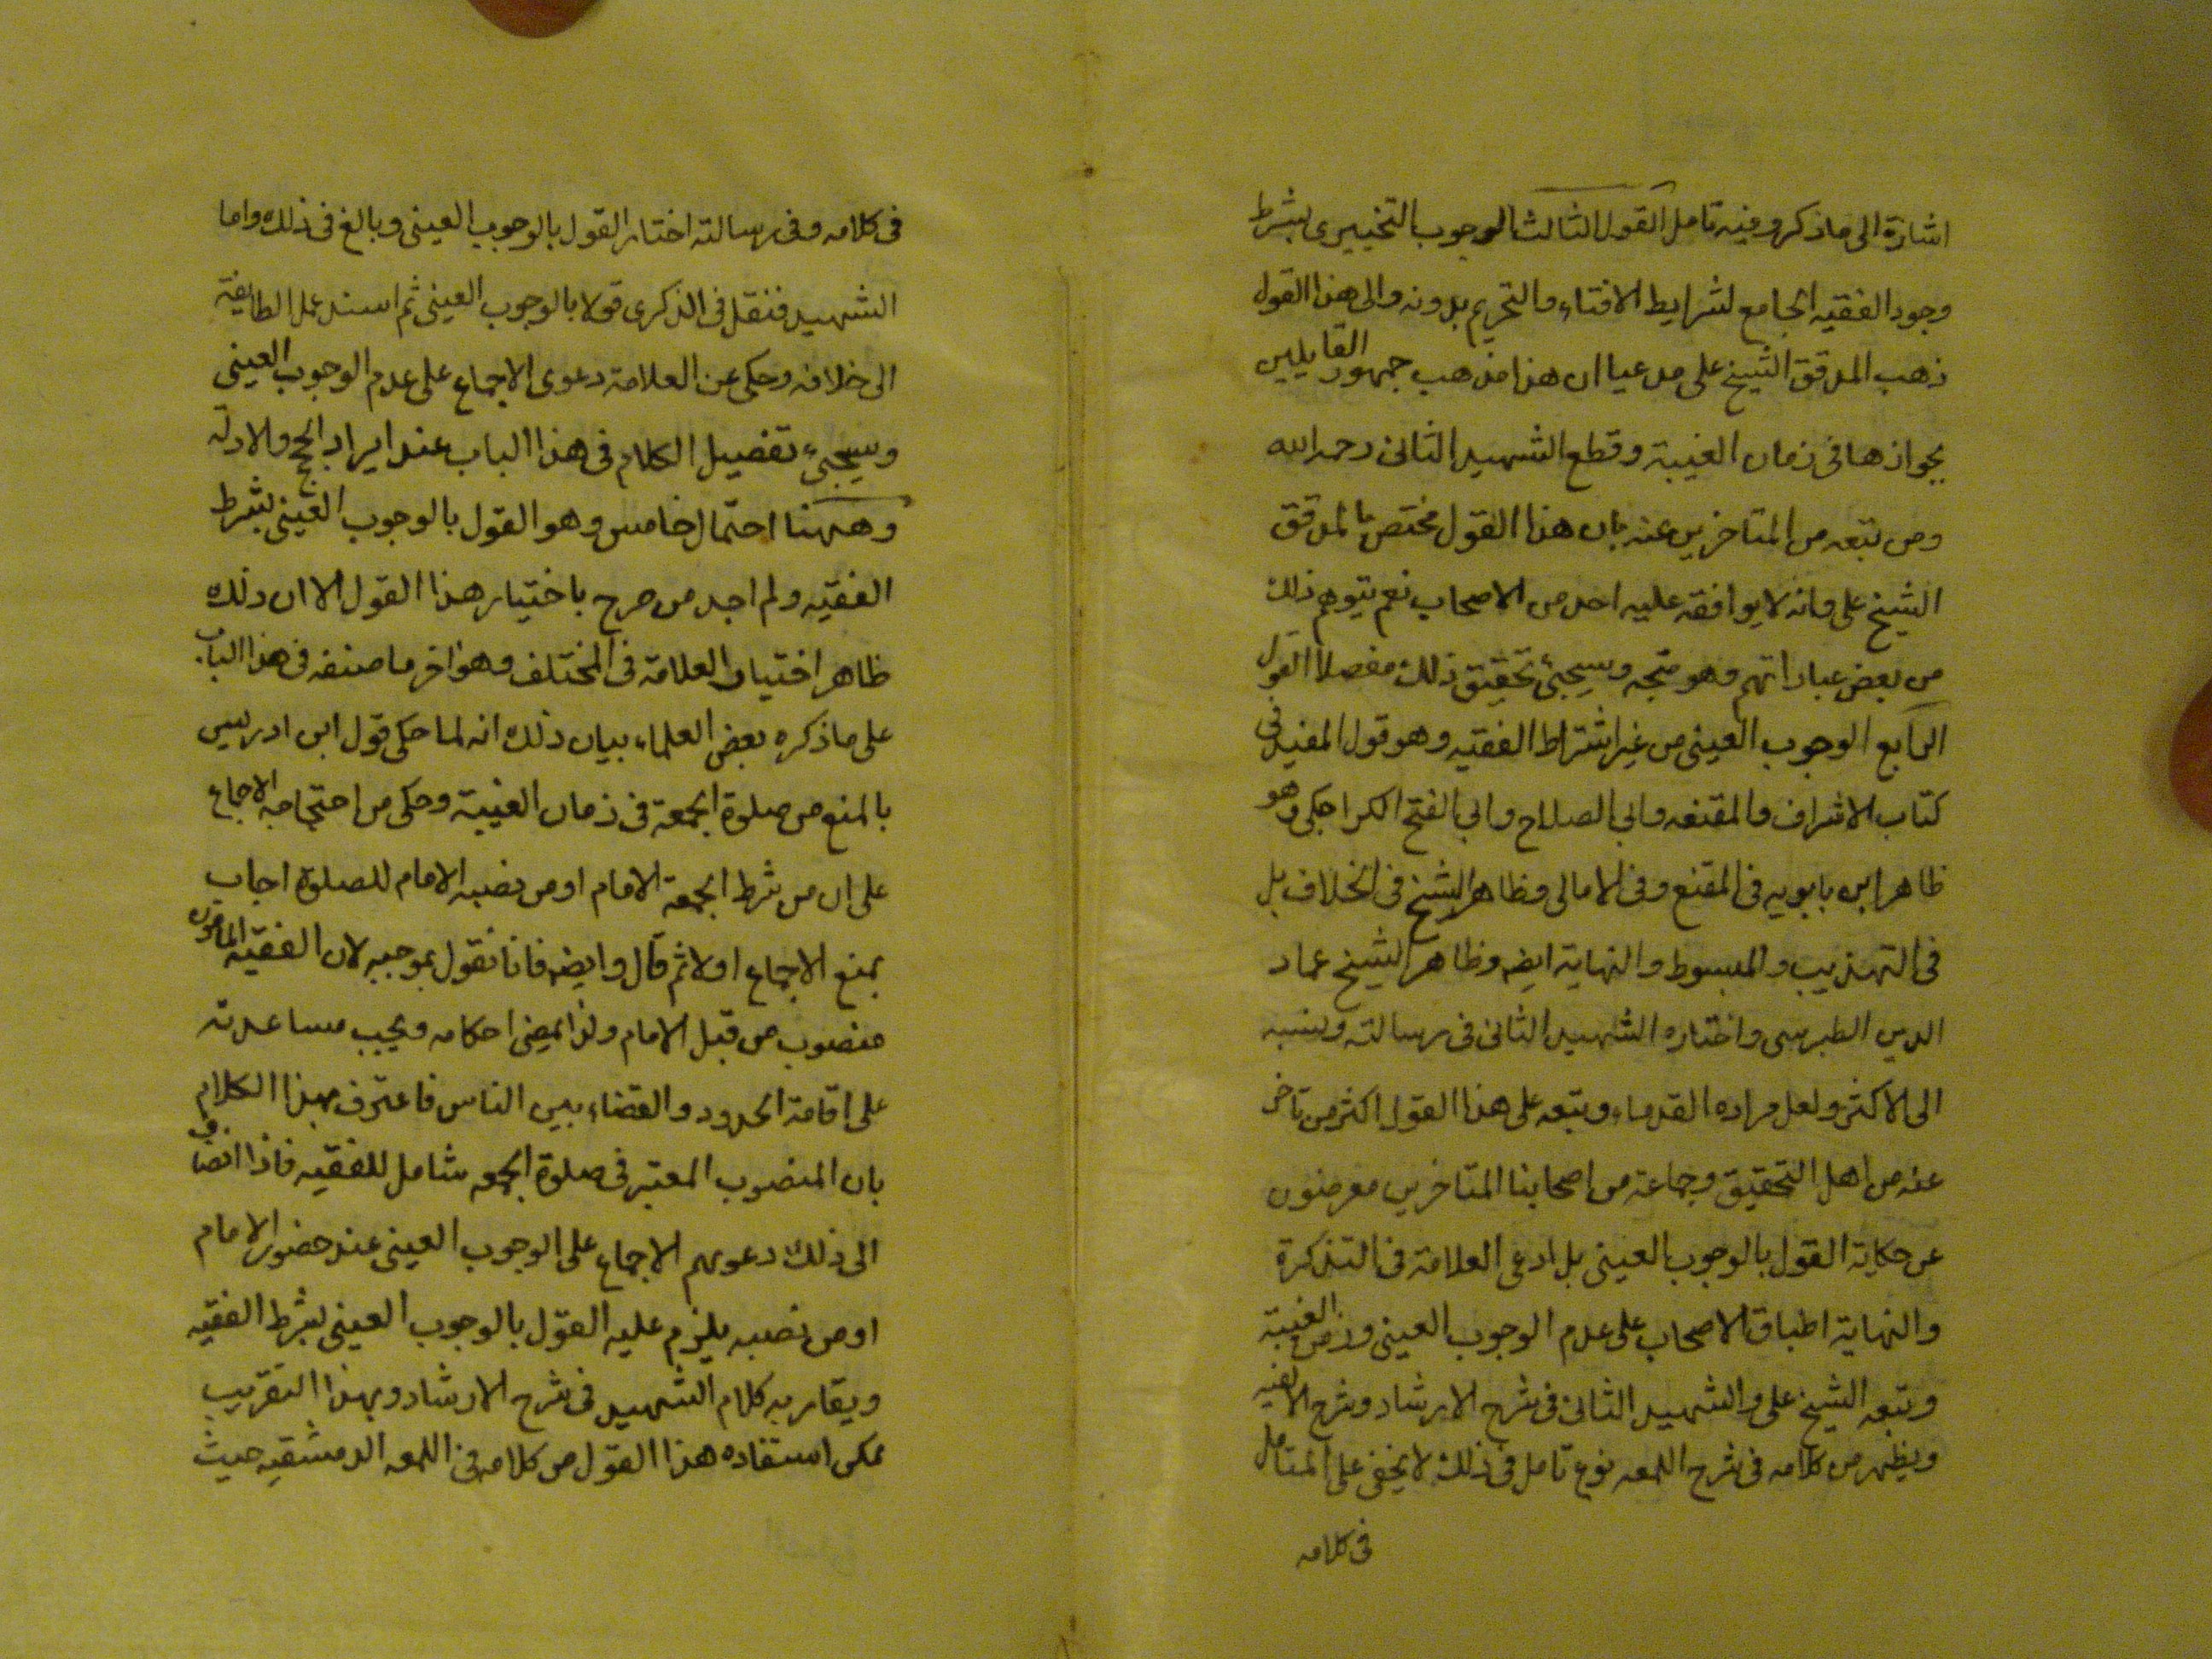 اشارة الى ماذكر وفيه تامل القول الثالث الوجوب التخييرى بشرط
وجود الفقيه الجامع لشرايط الافتاء والتحريم بدونه والى هذا القول
ذهب المدقق الشيخ على مدعيا ان هذا مذهب جمهور القايلين
بجوازها فى زمان الغيبة وقطع الشهيد الثانى رحمه الله
ومن تبعه من المتاخرين عنه بان هذا القول مختص بالمدقق
الشيخ على وانه لا يوافقه عليه احد من الاصحاب نعم يتوهم ذلك
من بعض عباراتهم وهو متجه وسيجئ تحقيق ذلك مفصلا القول
الرابع الوجوب العينى من غير اشتراط الفقيه وهو قول المفيد فى
كتاب الاشراف والمقنعه وابى الصلاح وابى الفتح الكراجكى وهو
ظاهر ابن بابويه فى المقنع وفى الامالى وظاهر الشيخ فى الخلاف بل
فى التهذيب والمبسوط والنهاية ايضه وظاهر الشيخ عماد
الدين الطبرسى واختاره الشهيد الثانى فى رسالته ونسبه
الى الاكثر ولعل مراده القدماء وتبعه على هذا القول اكثر من تاخر
عنه من اهل التحقيق وجماعة من اصحابنا المتاخرين معرضون
عن حكاية القول بالوجوب العينى بل ادعى العلامة فى التذكرة
والنهاية اطباق الاصحاب على عدم الوجوب العينى فى زمن الغيبة
وتبعه الشيخ على والشهيد الثانى فى شرح الارشاد وشرح الالفيه
ويظهر من كلامه فى شرح اللمعه نوع تامل فى ذلك لا يخفى على المتامل
فى كلامه
فى كلامه وفى رسالته اختار القول بالوجوب العينى وبالغ فى ذلك واما
الشهيد فنقل فى الذكرى قولا بالوجوب العينى ثم اسند عمل الطايفة
الى خلافه وحكى عن العلامة دعوى الاجماع على عدم الوجوب العينى
وسيجئ تفصيل الكلام فى هذا الباب عند ايراد الحجج والادلة
وههنا احتمال خامس وهو القول بالوجوب العينى بشرط
الفقيه ولم اجد من صرح باختيار هذا القول الا ان ذلك
ظاهر اختيار العلامة فى المختلف وهو اخر ما صنفه فى هذا الباب
على ما ذكره بعض العلماء بيان ذلك انه لما حكى قول ابن ادريس
بالمنع من صلوة الجمعة فى زمان الغيبة وحكى من احتجاجه الاجماع
على ان من شرط الجمعة الامام او من نصبه الامام للصلوة اجاب
بمنع الاجماع اولا ثم قال وايضه فانا نقول بموجبه لان الفقيه المامون
منصوب من قبل الامام ولذا يمضى احكامه ويجب مساعدته
على اقامة الحدود والقضاء بين الناس فاعترف بهذا الكلام
بان المنصوب المعتبر فى صلوة الجمعه شامل للفقيه فاذا انضاف
الى ذلك دعويهم الاجماع على الوجوب العينى عند حضور الامام
او من نصبه يلزم عليه القول بالوجوب العينى بشرط الفقيه
ويقاربه كلام الشهيد فى شرح الارشاد وبهذا التقريب
يمكن استفاده هذا القول من كلامه فى اللمعه الدمشقيه حيث